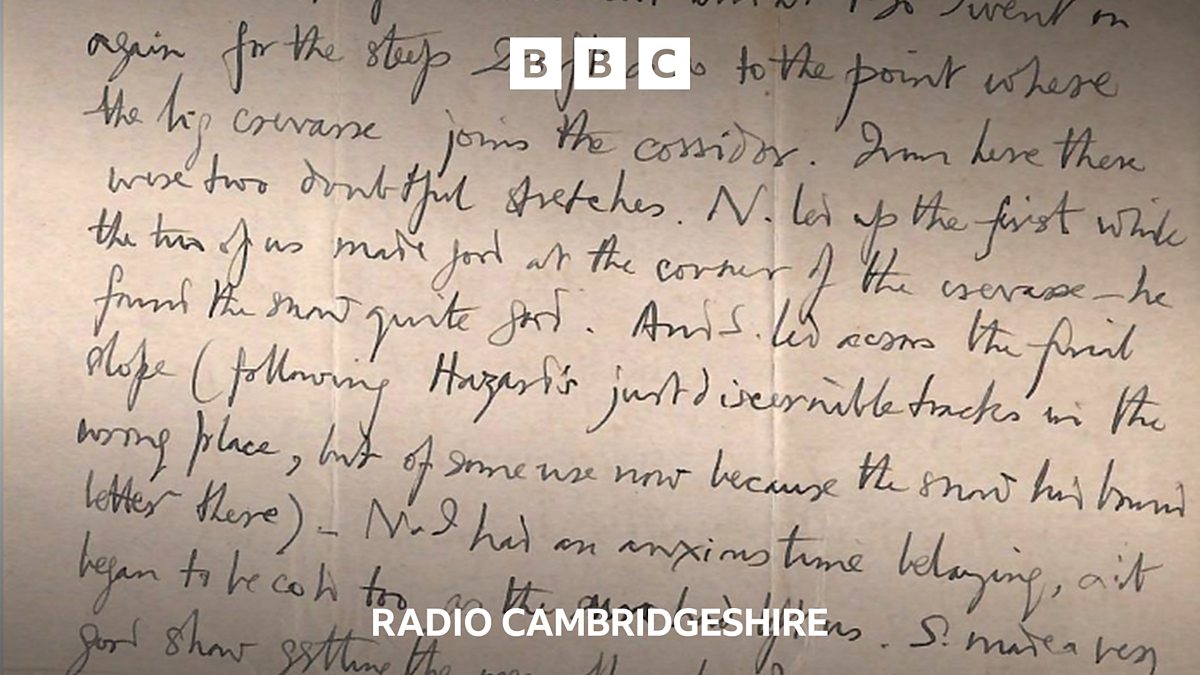 I went on
again for the steps to the point where
BBC
the big crevasse joins the corridor. From here there
were two doubtful stretches. N. led up the first while
the two of us made good at the corner of the crevasse – he
found the snow quite good. And S. led across the final
slope (following Hazard's just discernible tracks in the
wrong place, but of some use now because the snow had bound
better there) – N. & I had an anxious time belaying, & it
began to be cold too as the had left us. S. made a very
RADIO CAMBRIDGESHIRE
good show getting the